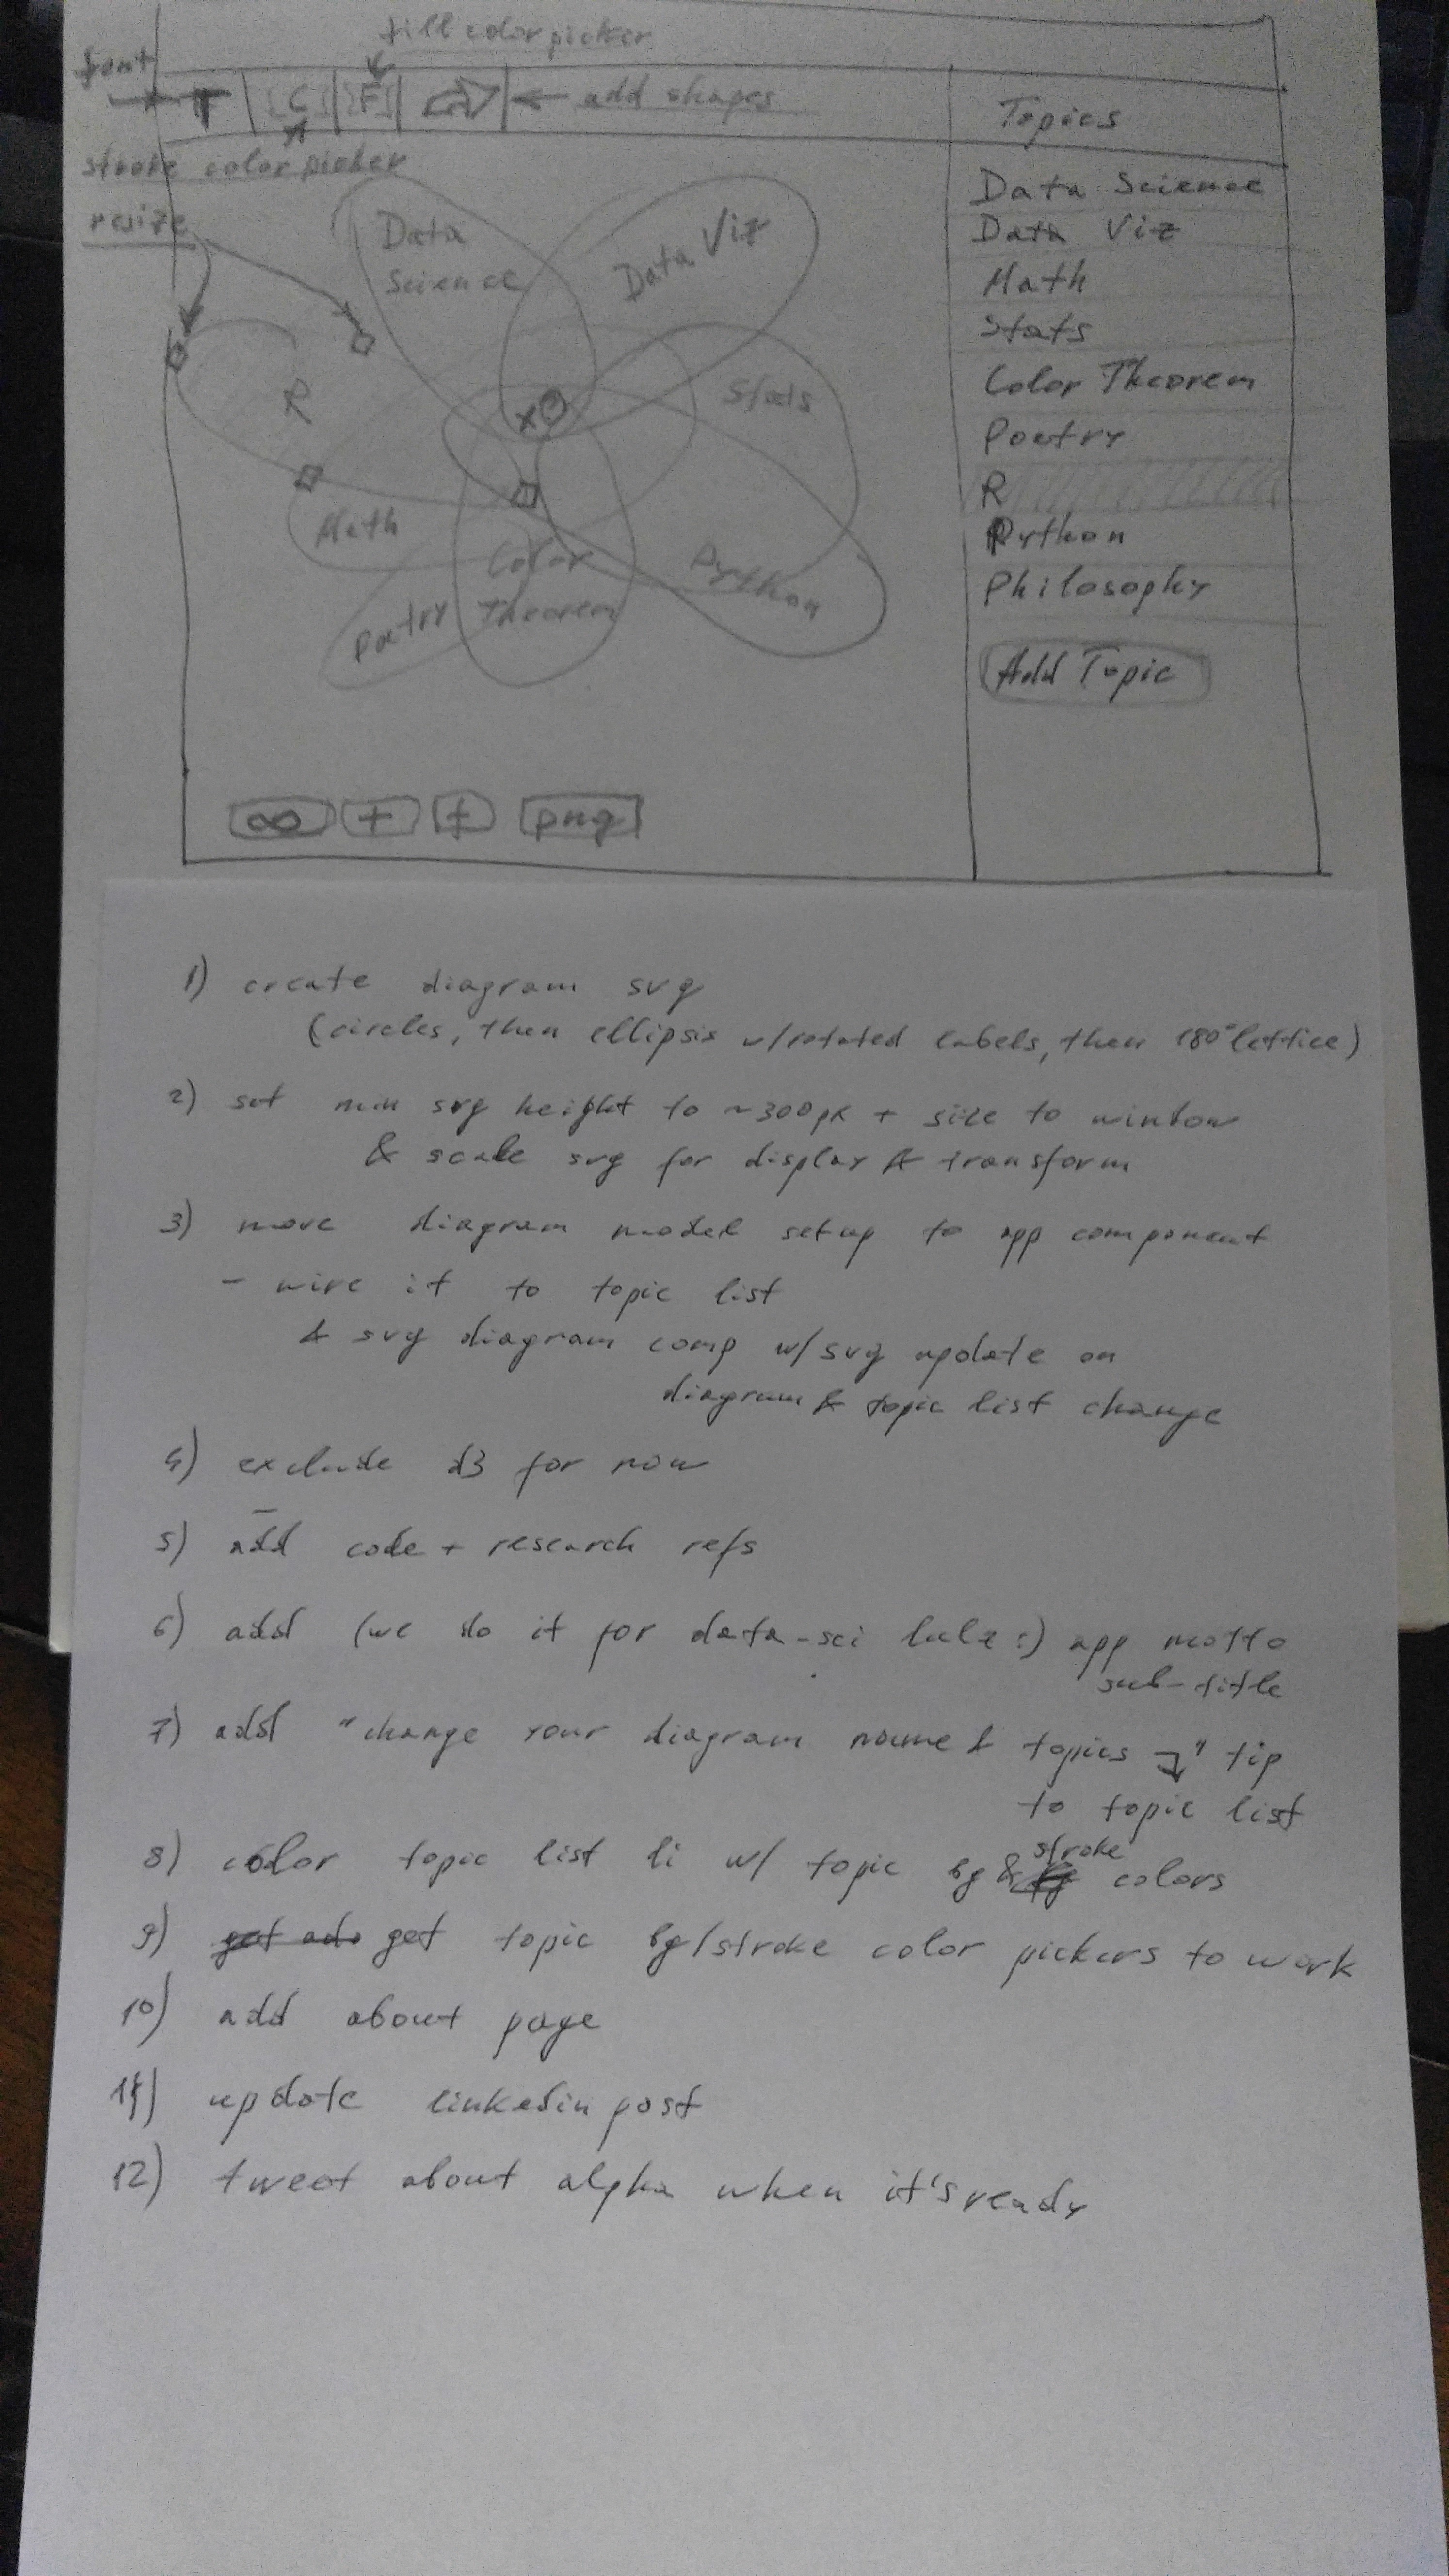 fill color picker
font
T C F ← add shapes
stroke color picker
resize
Topics
Data Science
Data Viz
Math
Stats
Color Theorem
Poetry
R
Python
Philosophy
Add Topic
Data
Science
Data Viz
R
Stats
x
Math
Color
Theorem
Python
Poetry
∞ + f png
1) create diagram svg
(circles, then ellipsis w/rotated labels, then 180° lettice)
2) set min svg height to ~300px + size to window
& scale svg for display & transform
3) move diagram model setup to app component
- wire it to topic list
& svg diagram comp w/ svg update on
diagram & topic list change
4) exclude d3 for now
5) add code + research refs
6) add (we do it for data-sci lulz :) app motto
sub-title
7) add "change your diagram name & topics ↴" tip
to topic list
8) color topic list li w/ topic bg & stroke colors
9) get topic bg/stroke color pickers to work
10) add about page
11) update linkedin post
12) tweet about alpha when it's ready